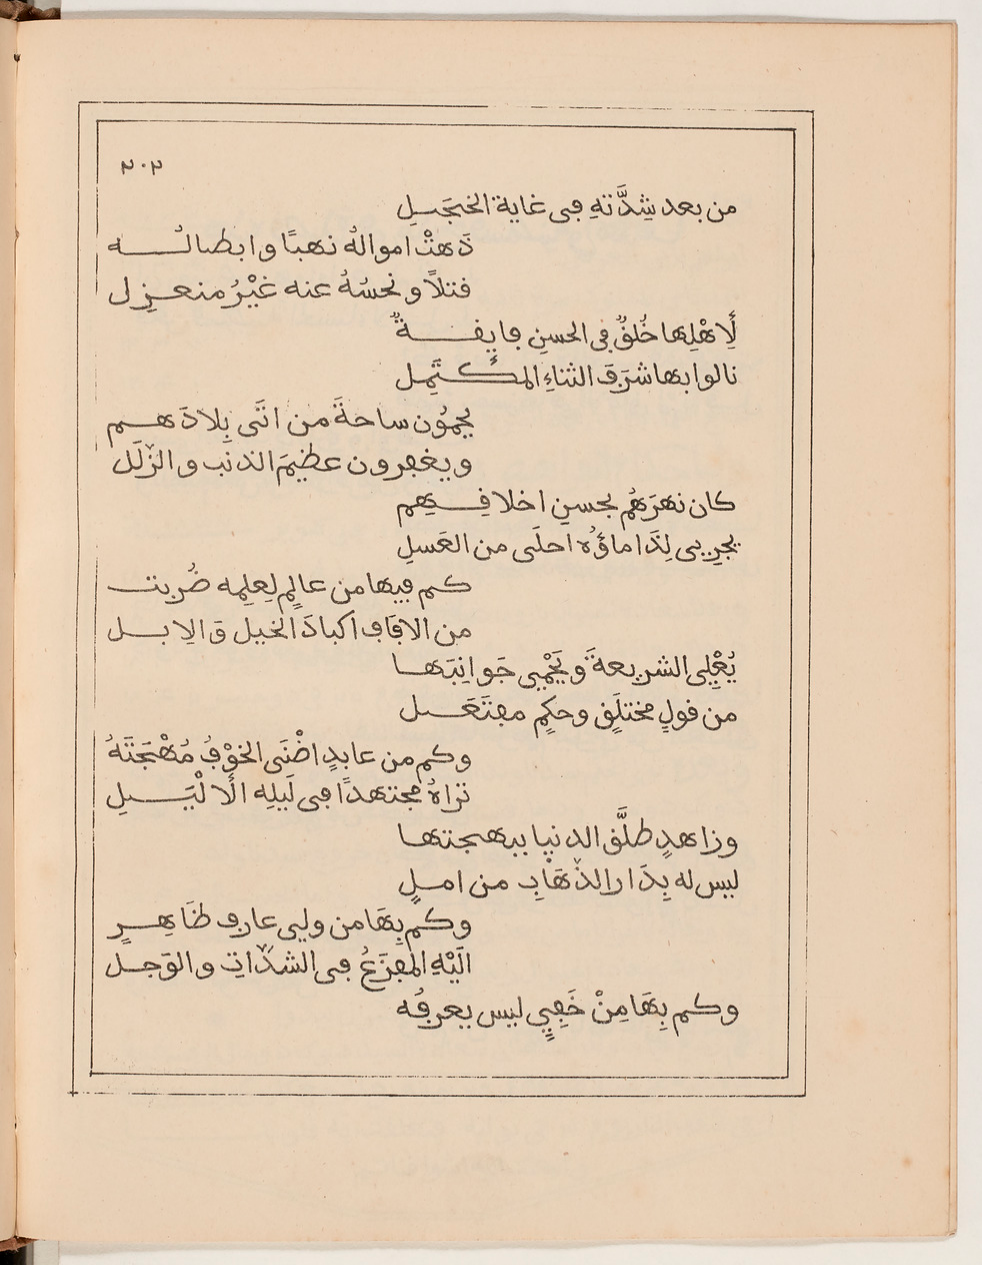 ٢٠٢
من بعد شِدَّتهِ في غاية الخَجَلِ
ذَهتْ اموالهُ نهبًا وابطالُه
قتلاً ونحسُهُ عنه غيْرُ منعزِل
لِأهْلِها خُلقٌ في الحسنِ فايقةٌ
نالوا بها شرَفَ الثناءِ المكتَمِل
يحمُون ساحةَ من اتَى بِلادَهم
ويغفرون عظيمَ الذنبِ والزّلَل
كان نهرَهُم بحسنِ اخلاقِهِم
يجرِيى لِذَا ماؤُه احلَى من العَسلِ
كم فيها من عالِمٍ لِعِلمِه ضُربت
من الافَاقِ اكبادَ الخيل وَالِابل
يُعْلِى الشريعةَ ويَحْمِيى جَوانِبَها
من قولِ مختلَقٍ وحكمٍ مفتَعَل
وكم من عابدٍ اضْنَى الخوْفُ مُهْجَتَهُ
تراهُ مجتهدًا في لَيلِه الأَلْيَلِ
وزاهدٍ طلَّق الدنيا ببهجتها
ليس له بِدَار الذّهَابِ من املٍ
وكم بِهَا من وليى عارفٍ ظَاهِرٍ
الَيْهِ المفزَعُ في الشدّاتِ والوَجل
وكم بِهَا مِنْ خَفِيٍ ليس يعرفُه